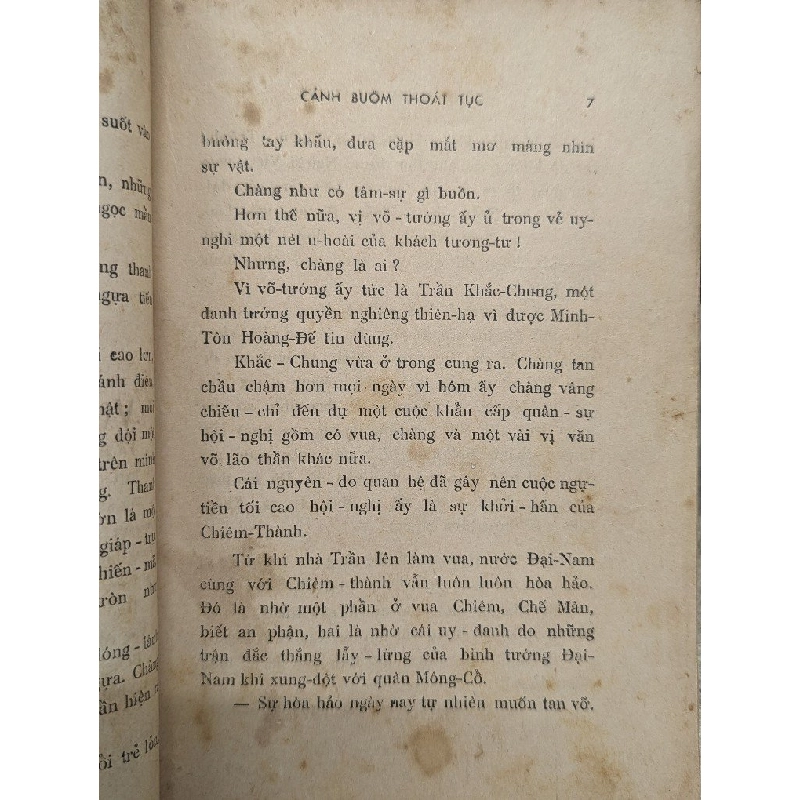 suốt vào
n, những
ngọc mầu
ng thanh
ngựa tiến
i cao lớn,
ánh điện
hật; mũ
g dội mộ
trên mình
g. Thanh
ơn là mộ
giáp - trụ
hiến - mã
ròn như
lóng - lánh
ựa. Chàng
ần hiện ra
ồi trẻ lóa
CÁNH BUỒM THOÁT TỤC 7
buông tay khấu, đưa cặp mắt mơ màng nhìn
sự vật.
Chàng như có tâm-sự gì buồn.
Hơn thế nữa, vị võ - tướng ấy ủ trong vẻ uy-
nghi một nét u-hoài của khách tương-tư !
Nhưng, chàng là ai ?
Vì võ-tướng ấy tức là Trần Khắc-Chung, một
danh tướng quyền nghiêng thiên-hạ vì được Minh-
Tôn Hoàng-Đế tin dùng.
Khắc - Chung vừa ở trong cung ra. Chàng tan
chầu chậm hơn mọi ngày vì hôm ấy chàng vâng
chiếu - chỉ đến dự một cuộc khẩn cấp quân - sự
hội - nghị gồm có vua, chàng và một vài vị văn
võ lão thần khác nữa.
Cái nguyên - do quan hệ đã gây nên cuộc ngự-
tiền tối cao hội - nghị ấy là sự khởi - hấn của
Chiêm-Thành.
Từ khi nhà Trần lên làm vua, nước Đại-Nam
cùng với Chiêm - thành vẫn luôn luôn hòa hảo.
Đó là nhờ một phần ở vua Chiêm, Chế Mân,
biết an phận, hai là nhờ cái uy - danh do những
trận đắc thắng lẫy - lừng của binh tướng Đại-
Nam khi xung-đột với quân Mông-Cổ.
— Sự hòa hảo ngày nay tự nhiên muốn tan vỡ.